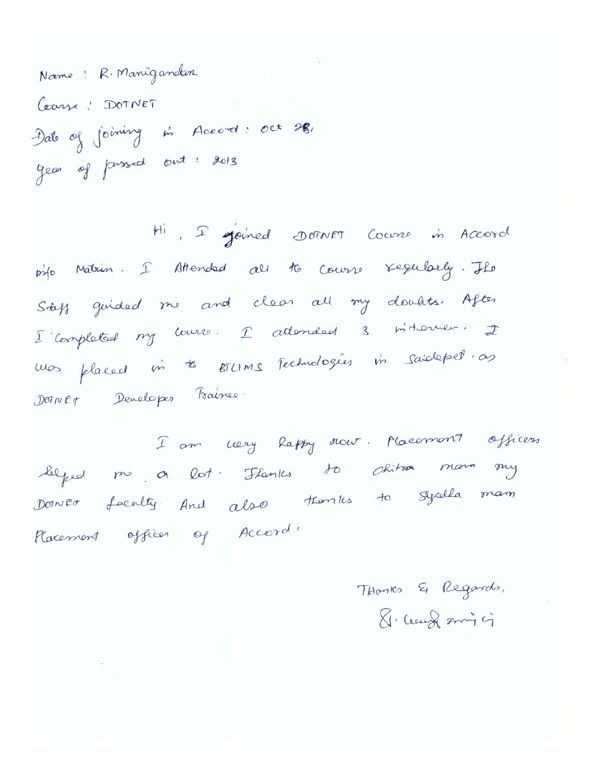 Name : R. Manigandan
Course : DOTNET
Date of joining in Accord : Oct 28,
Year of passed out : 2013
Hi, I joined DOTNET Course in Accord
info Matrix. I Attended all to course regularly. The
Staff guided me and clear all my doubts. After
I completed my course. I attended 3 interview. I
was placed in to BTLIMS Technologies in Saidepet as
DOTNET Developer Trainee.
I am very happy now. Placement officers
helped me a lot. Thanks to chitra mam my
DOTNET faculty. And also thanks to mam
Placement officer of Accord.
Thanks & Regards,